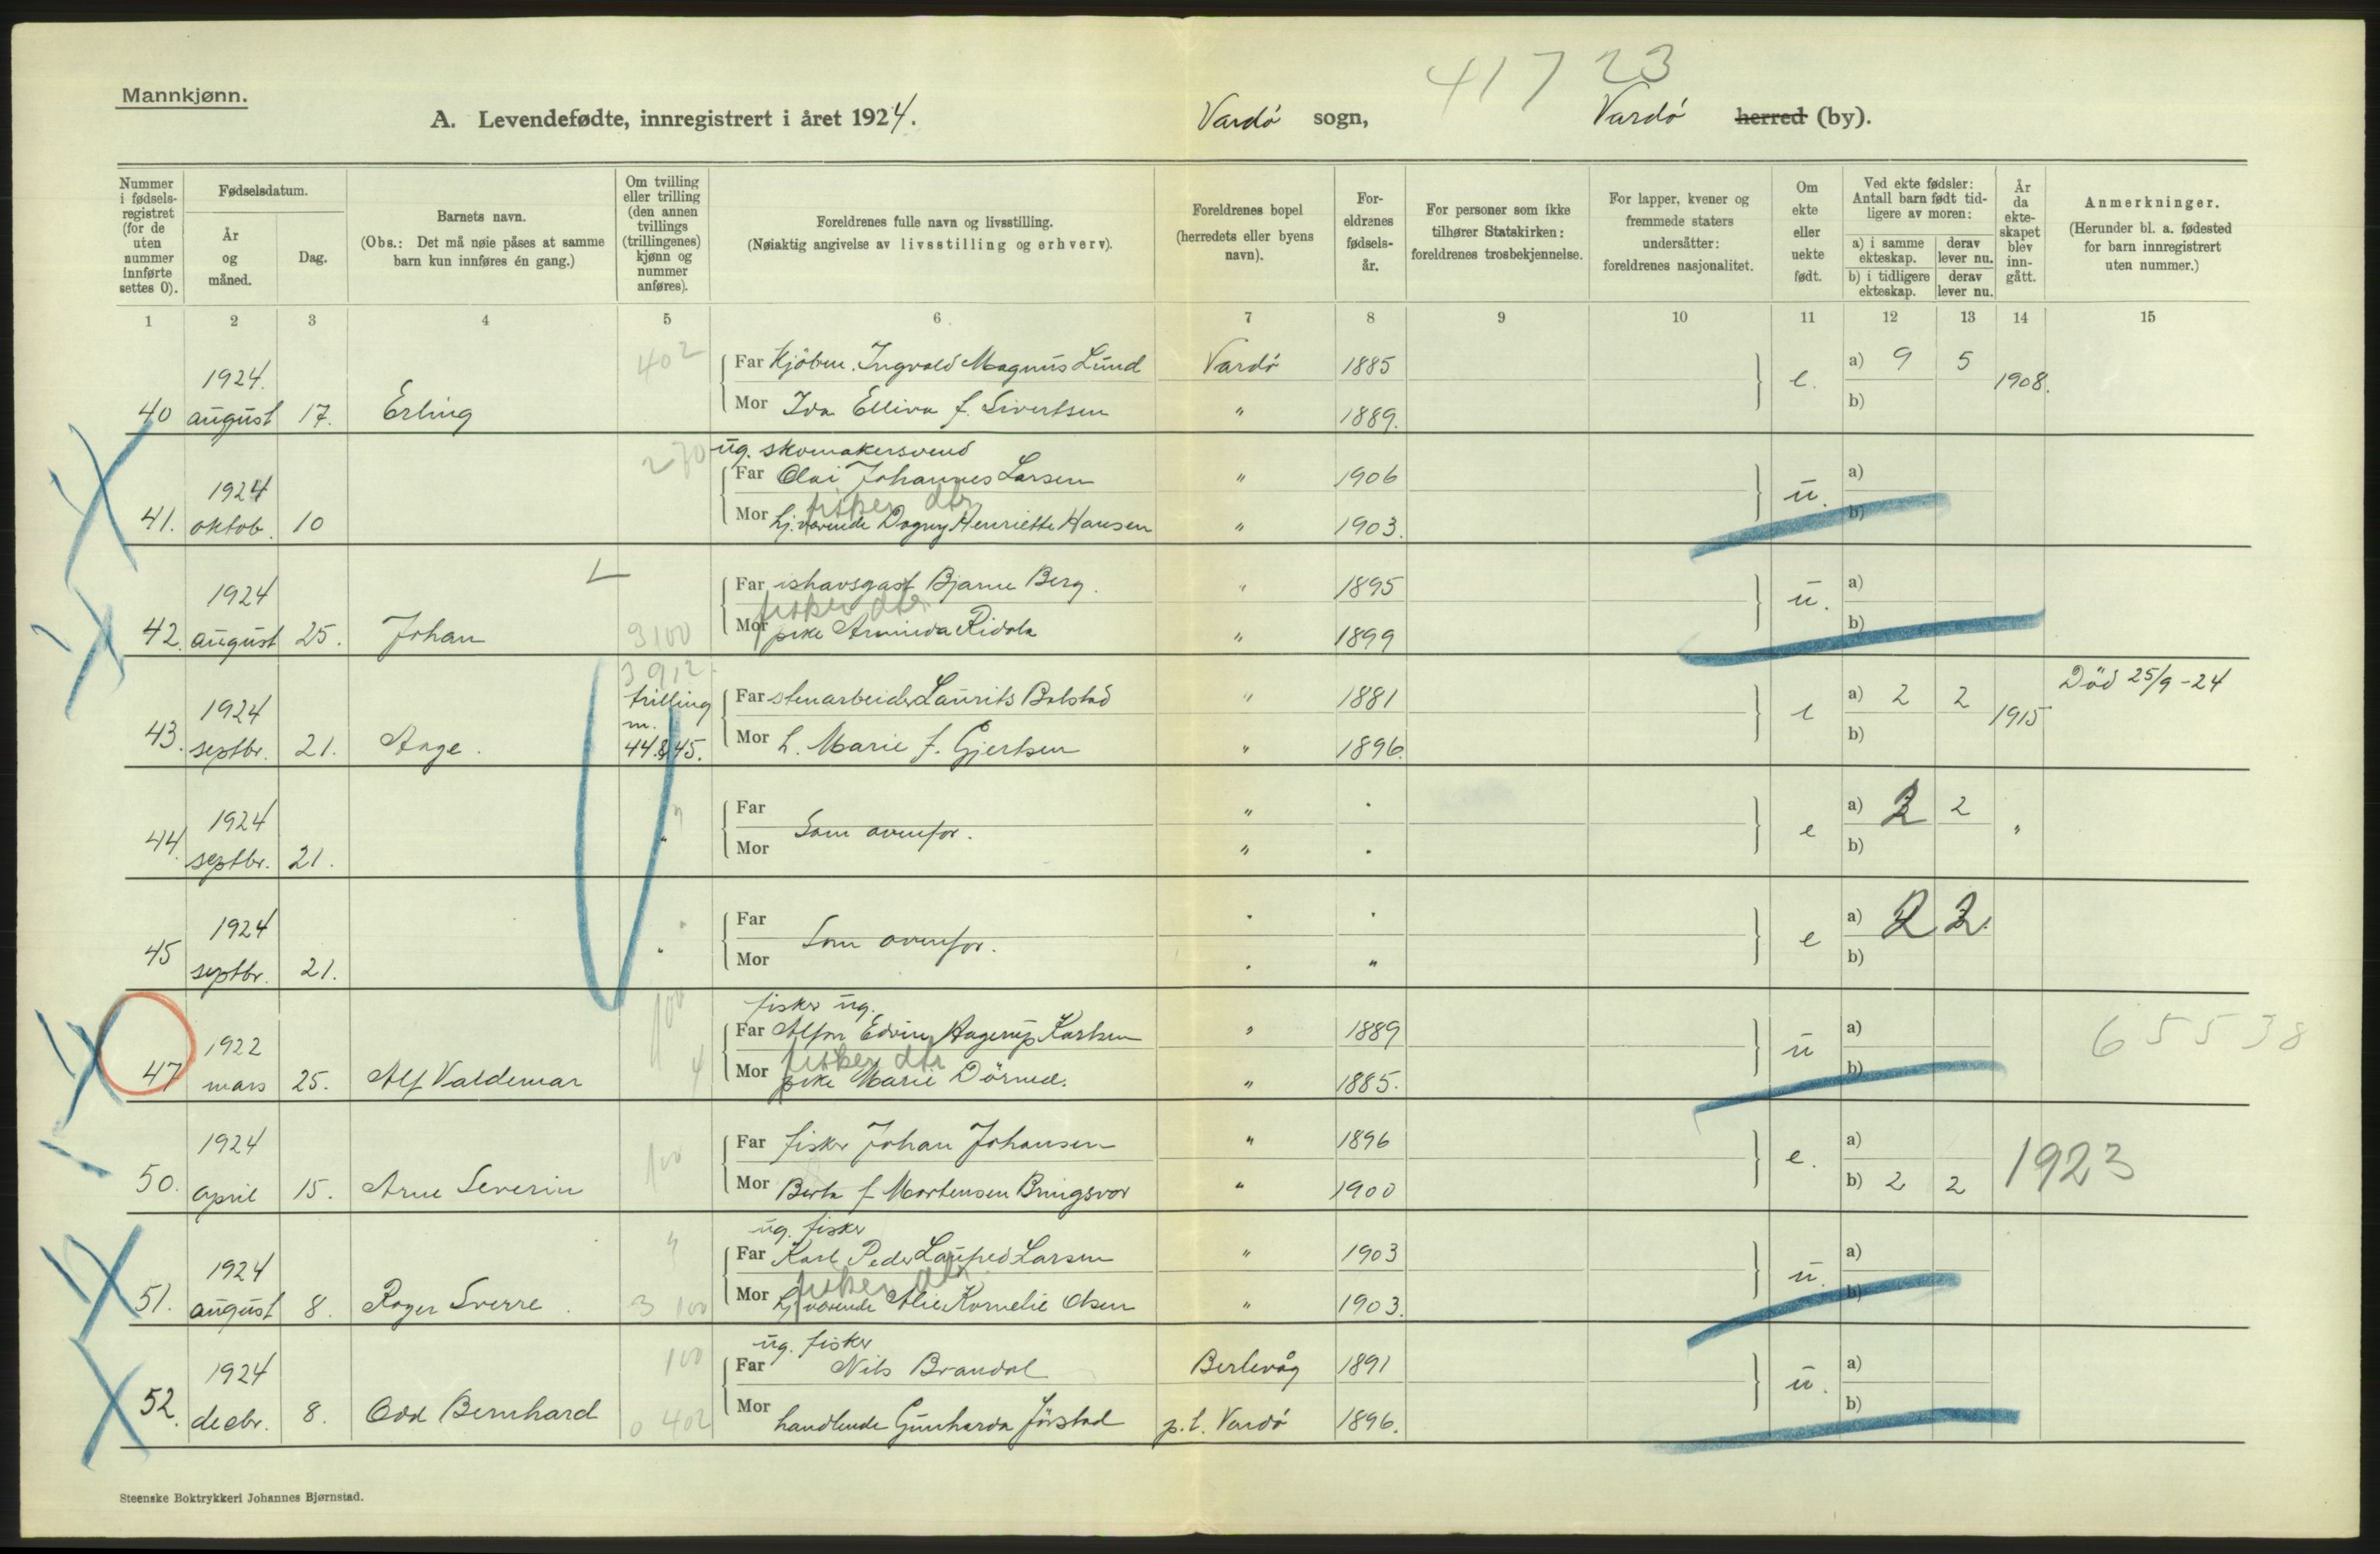 41 7 23
Mannkjønn.
A. Levendefødte, innregistrert i året 1924. Vardö sogn, Vardö herred (by).
Nummer i fødsels-registret (for de uten nummer innførte settes 0).
Fødselsdatum.
År og måned.
Dag.
Barnets navn.
(Obs.: Det må nøie påses at samme barn kun innføres én gang.)
Om tvilling eller trilling (den annen tvillings (trillingenes) kjønn og nummer anføres).
Foreldrenes fulle navn og livsstilling.
(Nøiaktig angivelse av livsstilling og erhverv).
Foreldrenes bopel (herredets eller byens navn).
For-eldrenes fødsels-år.
For personer som ikke tilhører Statskirken: foreldrenes trosbekjennelse.
For lapper, kvener og fremmede staters undersåtter: foreldrenes nasjonalitet.
Om ekte eller uekte født.
Ved ekte fødsler: Antall barn født tid-ligere av moren:
a) i samme ekteskap.
derav lever nu.
b) i tidligere ekteskap.
derav lever nu.
År da ekte-skapet blev inn-gått.
Anmerkninger.
(Herunder bl. a. fødested for barn innregistrert uten nummer.)
1 2 3 4 5 6 7 8 9 10 11 12 13 14 15
402
Far Kjöbm. Ingvald Magnus Lund Vardö 1885 a) 9 5
40 1924. august 17. Erling e. 1908.
Mor Ida Elliva f. Sivertsen " 1889. b)
270 ug. skomakersvend
Far Olai Johannes Larsen " 1906 a)
41. 1924 oktob. 10 ü.
fisker dtr
Mor hj.værende Dagny Henriette Hansen " 1903. b)
Far ishavsgast Bjarne Berg. " 1895 a)
42. 1924 august 25. Johan 3100 ü.
fisker dtr
Mor pike Arminda Ridala " 1899 b)
3912
Far stenarbeider Laurits Bolstad " 1881 a) 2 2 Död 25/9-24
43. 1924 septbr. 21. Aage. trilling m. 44. & 45. e 1915
Mor h. Marie f. Gjertsen " 1896. b)
Far " a) 2 2
44. 1924 septbr. 21. " Som ovenfor. e "
Mor " b)
Far a) 2 2.
45 1924 septbr. 21. " Som ovenfor. e
Mor " b)
100 fisker ug.
Far Alfon Edvin Hagerup Karlsen " 1889 a) 65538
47 1922 mars 25. Alf Valdemar 4 ü
fisker dtr
Mor pike Marie Dörmed. " 1885. b)
Far fisker Johan Johansen " 1896 a)
50. 1924 april 15. Arne Severin 100 e. 1923
Mor Berta f. Mortensen Bringsvor " 1900 b) 2 2
ug. fisker
Far Karl Peder Laufred Larsen " 1903 a)
51. 1924 august 8. Roger Sverre. 3 100 ü.
fisker dtr
Mor hj.værende Alie Kornelie Olsen " 1903. b)
100 ug. fisker
Far Nils Brandal Berlevåg 1891 a)
52. 1924 decbr. 8. Odd Bernhard 0 402 ü.
Mor handlende Gunharda Jörstad p.t. Vardö 1896. b)
Steenske Boktrykkeri Johannes Bjørnstad.